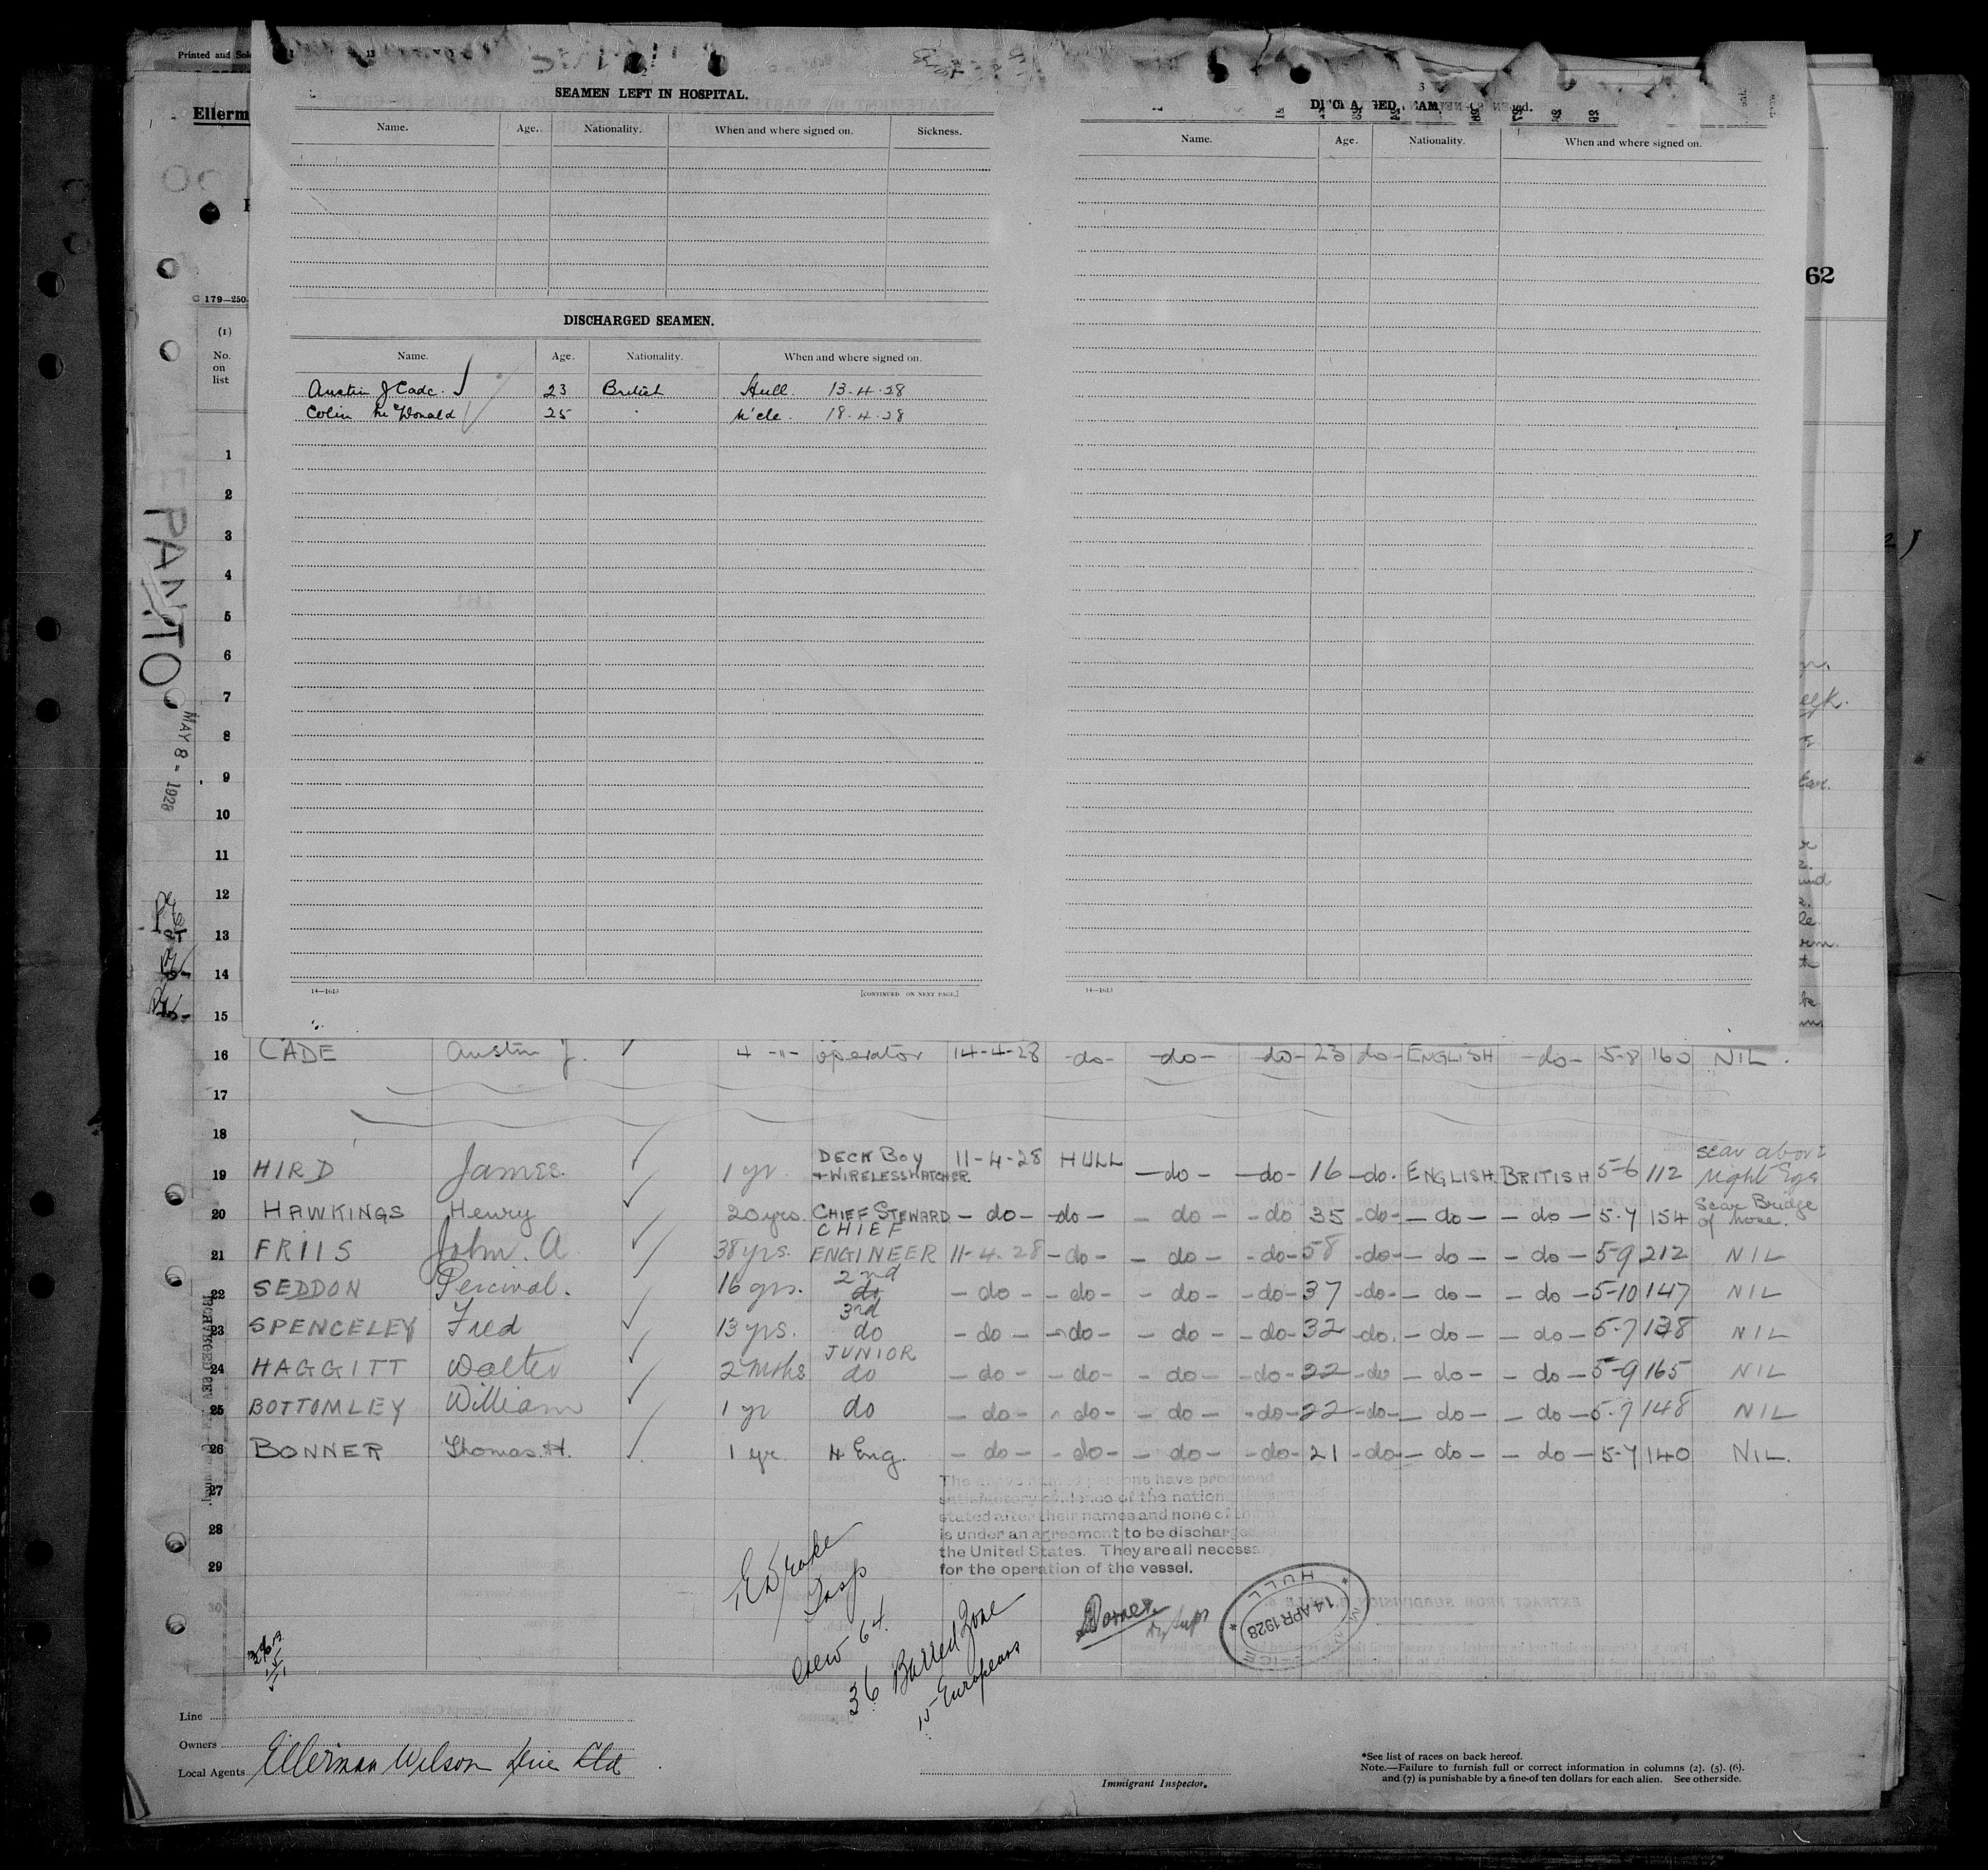 Printed and Sol
Ellerm
C 179—250
62
SEAMEN LEFT IN HOSPITAL.
Name. Age. Nationality. When and where signed on. Sickness.
DISCHARGED SEAMEN.
Name. Age. Nationality. When and where signed on.
Austin J Cade. 23 British Hull. 13-4-28
Colin McDonald 25 M'cle. 18-4-28
14—1613 [CONTINUED ON NEXT PAGE.]
3
Name. Age. Nationality. When and where signed on.
14—1613
LEPANTO
MAY 8 - 1928
(1)
No.
on
list
1
2
3
4
5
6
7
8
9
10
11
12
13
14
15
16 CADE Austin J. 4 -"- operator 14-4-28 -do- -do- -do- 23 do- ENGLISH -do- 5-8 160 NIL.
17
18
19 HIRD James. 1 yr. DECK BOY + WIRELESS WATCHER. 11-4-28 HULL -do- -do- 16 -do. ENGLISH. BRITISH 5-6 112 scar above right Eye
20 HAWKINGS Henry 20 yrs. CHIEF STEWARD -do- -do- -do- -do 35 -do- -do- -do- 5-4 154 Scar Bridge of nose.
21 FRIIS John. A. 38 yrs. CHIEF ENGINEER 11-4-28 -do- -do- -do- 58 -do- -do- -do- 5-9 212 NIL
22 SEDDON Percival. 16 yrs. 2nd do -do- -do- -do- -do- 37 -do- -do- -do- 5-10 147 NIL
23 SPENCELEY Fred 13 yrs. 3rd do -do- -do- -do- -do- 32 -do. -do- -do- 5-7 138 NIL
24 HAGGITT Walter 2 mths JUNIOR do -do- -do- -do- -do- 22 -do -do- -do- 5-9 165 NIL
25 BOTTOMLEY William 1 yr do -do- -do- -do- -do- 22 -do- -do- -do- 5-7 148 NIL
26 BONNER Thomas. H. 1 yr. 4 Eng. -do- -do- -do- -do- 21 -do- -do- -do- 5-4 140 NIL.
27
28
29
30
The above named persons have produced
satisfactory evidence of the nation
stated after their names and none of th
is under an agreement to be discharge
the United States. They are all necess
for the operation of the vessel.
E Drake
Insp
Crew 64.
36 Barred Zone
15 Europeans
HULL
14 APR 1928
Line
Owners
Local Agents Ellerman Wilson Line Ltd
Immigrant Inspector.
*See list of races on back hereof.
Note.—Failure to furnish full or correct information in columns (2). (5). (6).
and (7) is punishable by a fine of ten dollars for each alien. See other side.